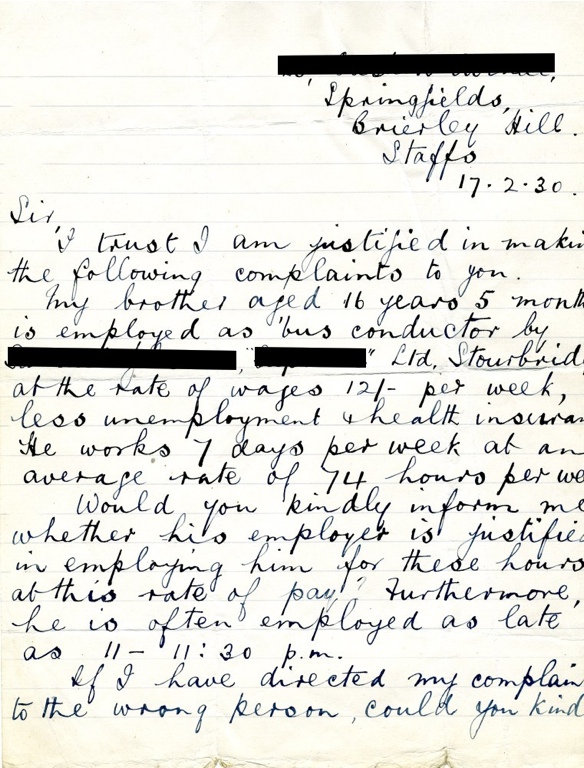 Springfields,
Brierley Hill.
Staffs
17.2.30.
Sir,
I trust I am justified in makin
the following complaints to you.
My brother aged 16 years 5 month
is employed as 'bus conductor by
" Ltd, Stourbrid
at the rate of wages 12/- per week,
less unemployment & health insuran
He works 7 days per week at an
average rate of 74 hours per we
Would you kindly inform me
whether his employer is justified
in employing him for these hours
at this rate of pay? Furthermore,
he is often employed as late
as 11 - 11:30 p.m.
If I have directed my complain
to the wrong person, could you kind